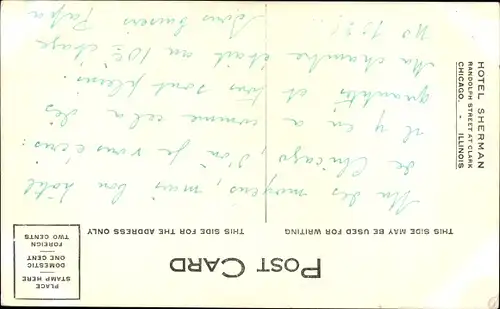 POST CARD
PLACE
STAMP HERE
DOMESTIC
ONE CENT
FOREIGN
TWO CENTS
THIS SIDE MAY BE USED FOR WRITING
THIS SIDE FOR THE ADDRESS ONLY
HOTEL SHERMAN
RANDOLPH STREET AT CLARK
CHICAGO, - ILLINOIS
Un des moyens, mais bon hôtel
de Chicago, d'où je vous écris:
il y en a comme cela des
quantités et tous sont pleins.
Ma chambre était au 10e étage
No 1031. Bons baisers
Papa